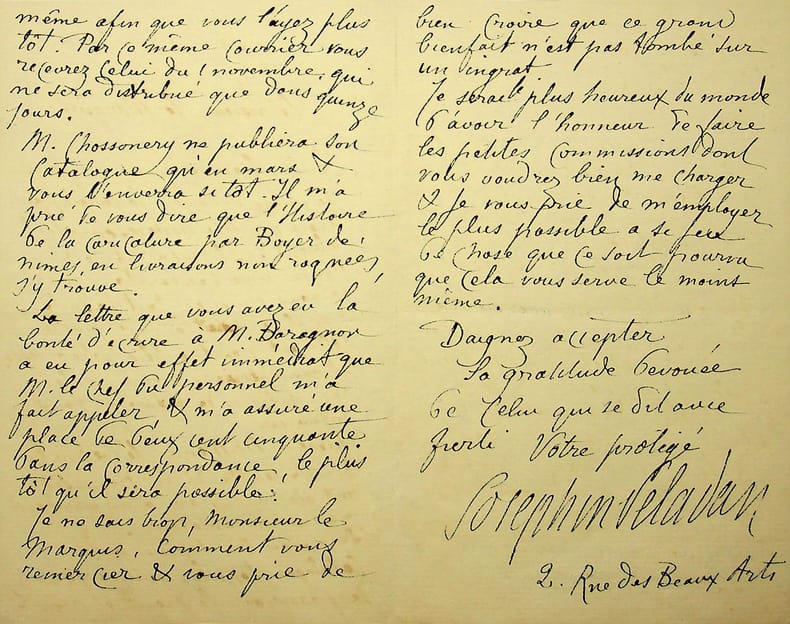 même afin que vous l'ayez plus
tôt. Par ce même courrier vous
recevrez celui du 1 novembre, qui
ne sera distribué que dans quinze
jours.
M. Chossonery ne publiera son
Catalogue qu'en mars &
vous l'enverra sitôt. Il m'a
prié de vous dire que l'Histoire
de la caricature par Boyer de
nimes, en livraisons non rognées,
s'y trouve.
La lettre que vous avez eu la
bonté d'écrire à M. Daragnon
a eu pour effet immédiat que
M. le chef du personnel m'a
fait appeler & m'a assuré une
place de deux cent cinquante
dans la Correspondance, le plus
tôt qu'il sera possible.
Je ne sais trop, Monsieur le
Marquis, Comment vous
remercier & vous prie de
bien croire que ce grand
bienfait n'est pas tombé sur
un ingrat.
Je serai plus heureux du monde
d'avoir l'honneur de faire
les petites Commissions dont
vous voudrez bien me charger
& je vous prie de m'employer
le plus possible a si peu
de chose que ce soit pourvu
que cela vous serve le moins
même.
Daignez accepter
La gratitude dévouée
de Celui qui se dit avec
fierté Votre protégé
Josephin Peladan
2. Rue des Beaux Arts